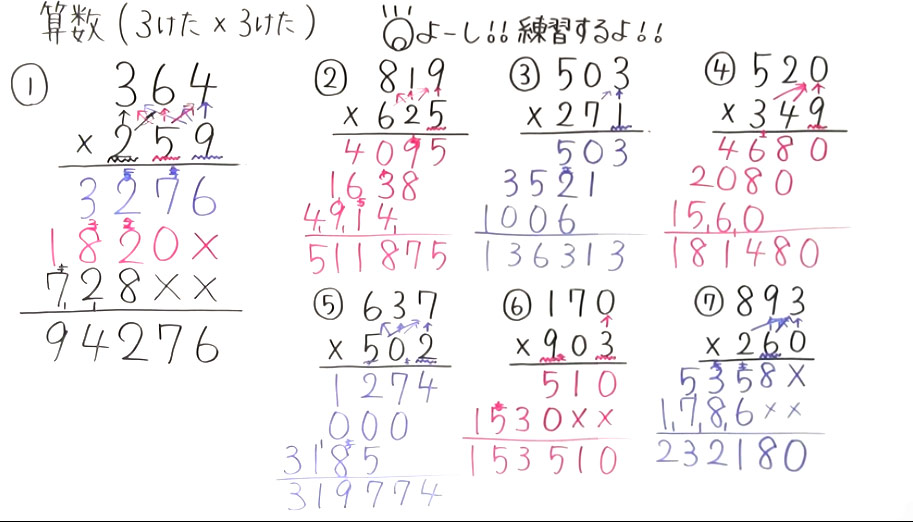 算数(3けた×3けた)
よーし!!練習するよ!!
①
364
×259
3276
1820×
728××
94276
②
819
×625
4095
1638
4914
511875
③
503
×271
503
3521
1006
136313
④
520
×349
4680
2080
1560
181480
⑤
637
×502
1274
000
3185
319774
⑥
170
×903
510
1530××
153510
⑦
893
×260
5358×
1786××
232180